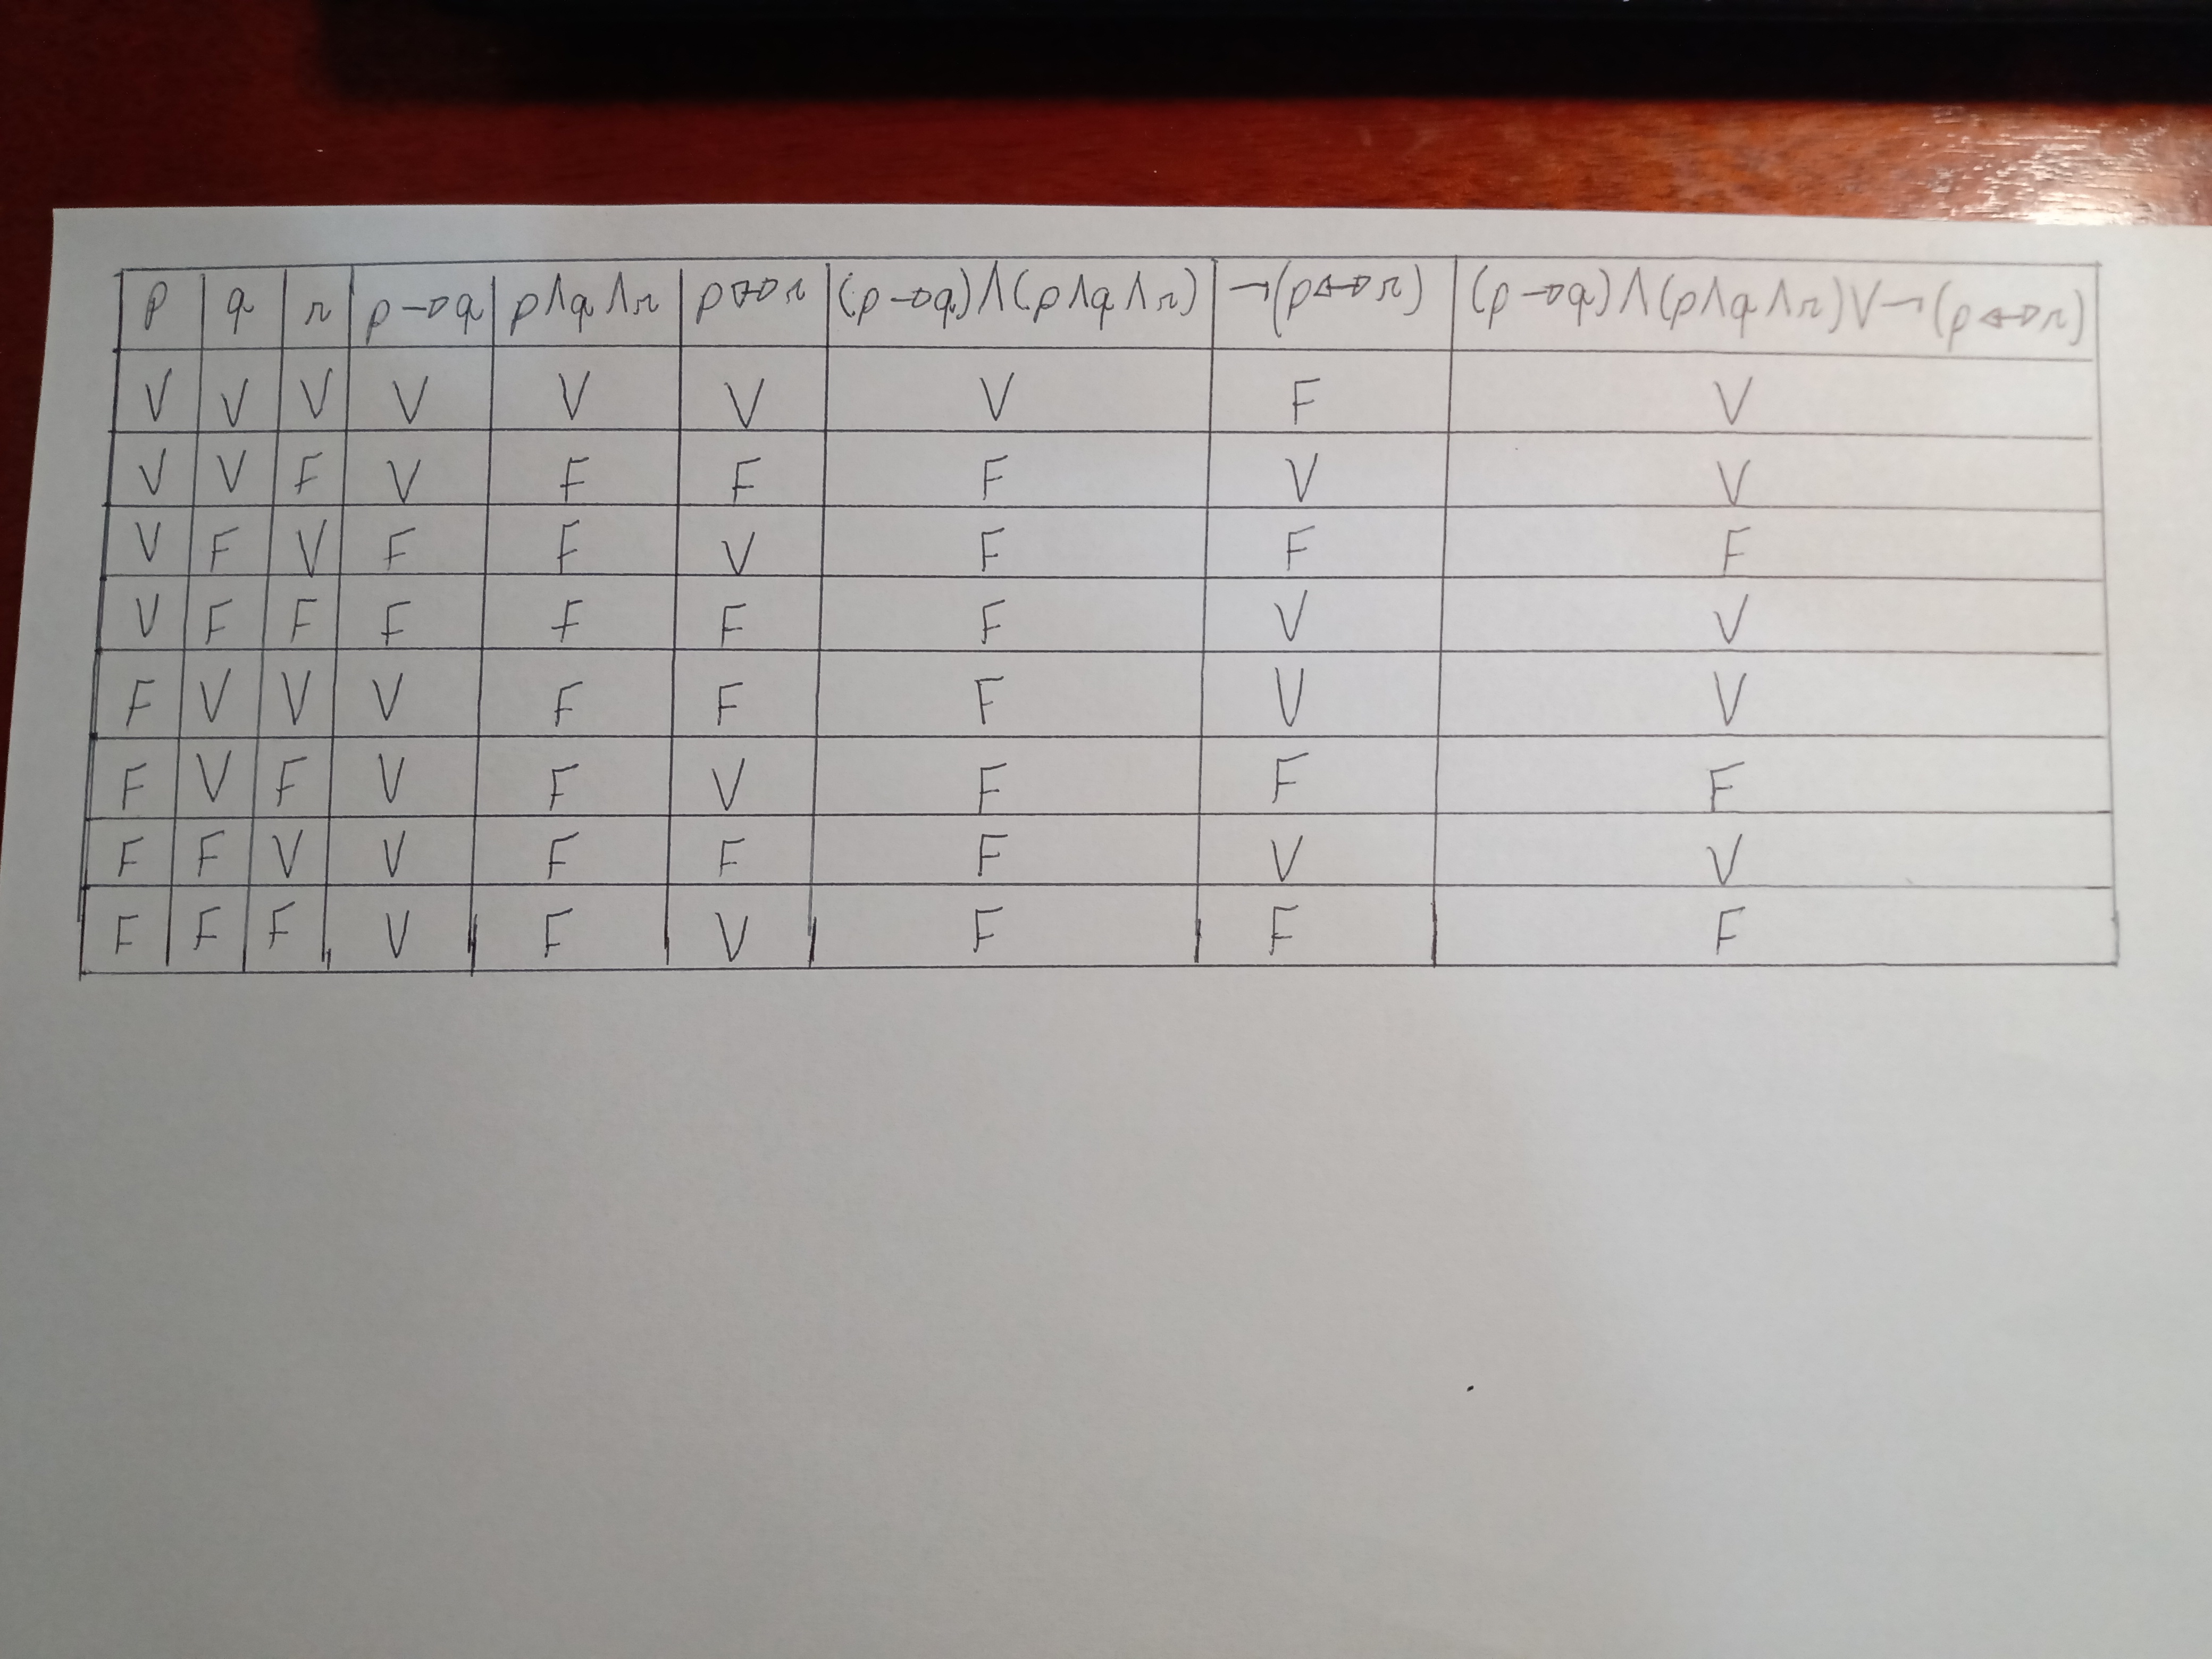 p q r p→q p∧q∧r p↔r (p→q)∧(p∧q∧r) ¬(p↔r) (p→q)∧(p∧q∧r)∨¬(p↔r)
V V V V V V V F V
V V F V F F F V V
V F V F F V F F F
V F F F F F F V V
F V V V F F F V V
F V F V F V F F F
F F V V F F F V V
F F F V F V F F F